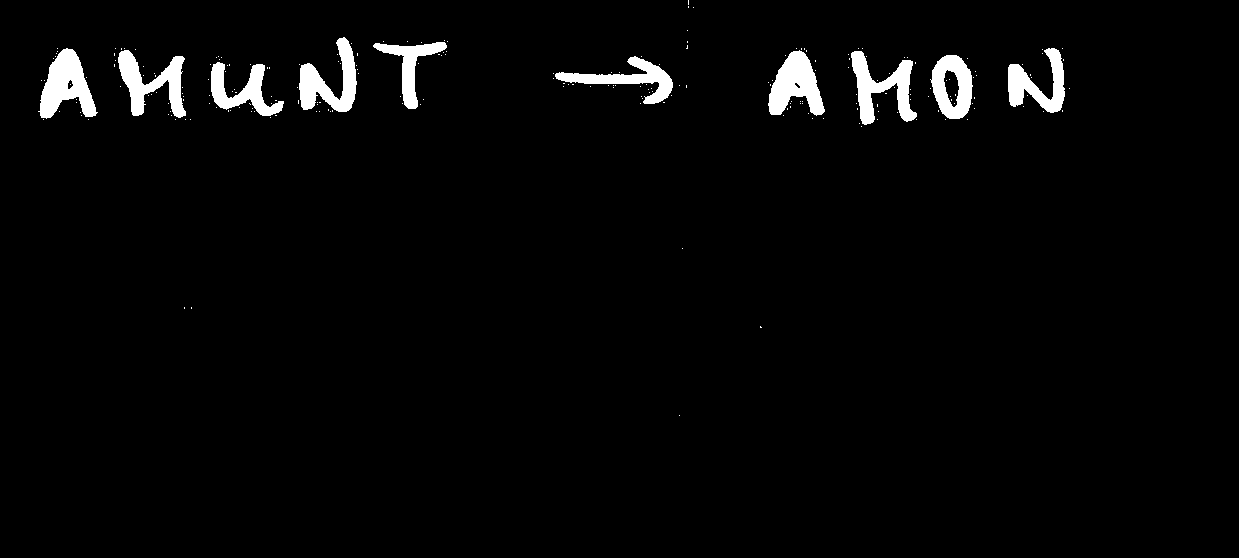 AMUNT → AMON